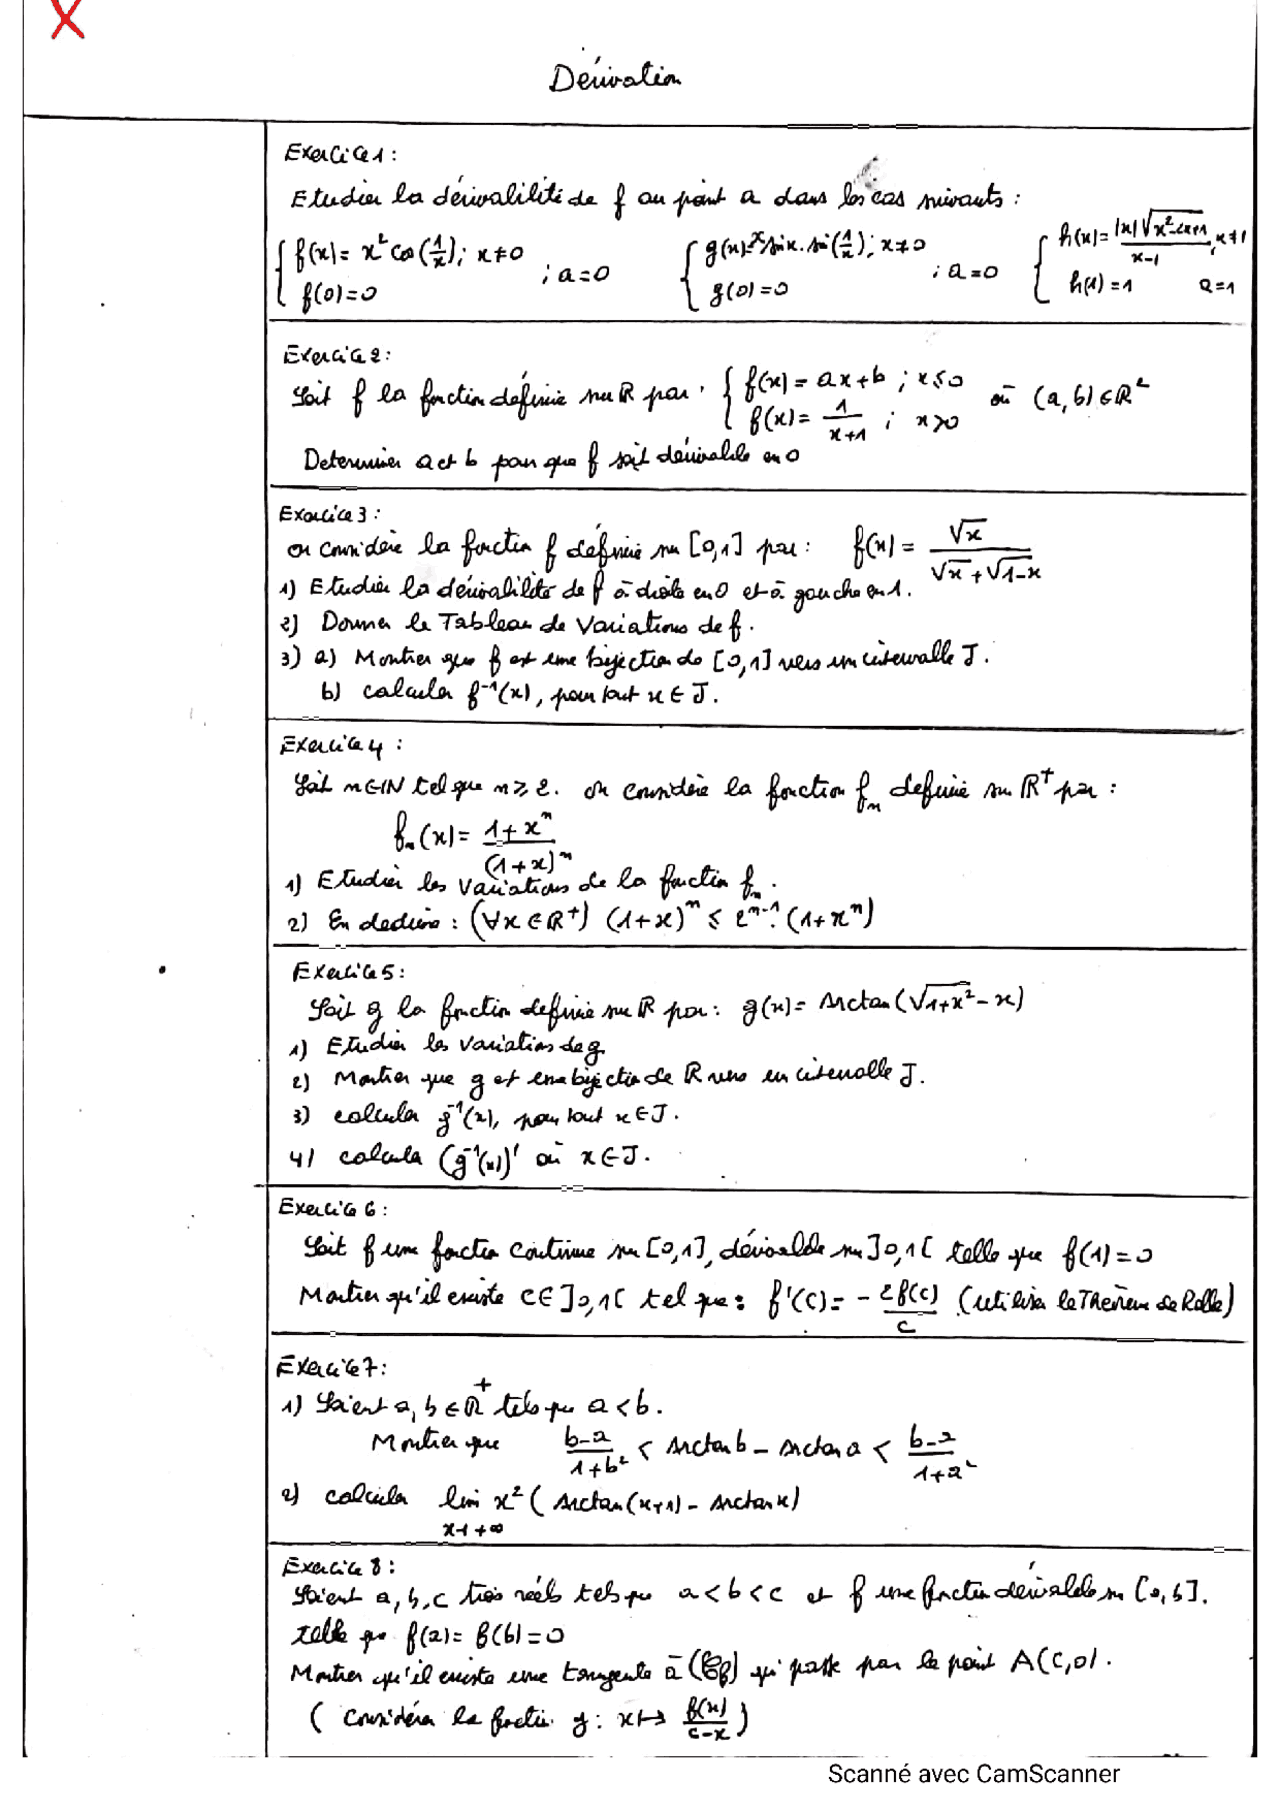 Dérivation
Exercice 1 :
Etudier la dérivabilité de f au point a dans les cas suivants :
{ f(x) = x² cos(1/x) ; x ≠ 0
f(0) = 0 ; a = 0
{ g(x) = sin x . sin(1/x) ; x ≠ 0
g(0) = 0 ; a = 0
{ h(x) = |x|√(x²-2x+1) / (x-1) , x ≠ 1
h(1) = 1 a = 1
Exercice 2 :
Soit f la fonction définie sur ℝ par : { f(x) = ax+b ; x ≤ 0
f(x) = 1/(x+1) ; x > 0 où (a,b) ∈ ℝ²
Determiner a et b pour que f soit dérivable en 0
Exercice 3 :
on considère la fonction f définie sur [0,1] par : f(x) = √x / (√x + √(1-x))
1) Etudier la dérivabilité de f à droite en 0 et à gauche en 1.
2) Donner le Tableau de Variations de f.
3) a) Montrer que f est une bijection de [0,1] vers un intervalle J.
b) calculer f⁻¹(x), pour tout x ∈ J.
Exercice 4 :
Soit n ∈ IN tel que n ≥ 2. on considère la fonction fₙ definie sur ℝ⁺ par :
fₙ(x) = (1+xⁿ) / (1+x)ⁿ
1) Etudier les variations de la fonction fₙ.
2) En deduire : (∀x ∈ ℝ⁺) (1+x)ⁿ ≤ 2ⁿ⁻¹.(1+xⁿ)
Exercice 5 :
Soit g la fonction definie sur ℝ par : g(x) = Arctan(√(1+x²) - x)
1) Etudier les variations de g
2) Montrer que g est une bijection de ℝ vers un intervalle J.
3) calculer g⁻¹(x), pour tout x ∈ J.
4) calculer (g⁻¹(x))' où x ∈ J.
Exercice 6 :
Soit f une fonction continue sur [0,1], dérivable sur ]0,1[ telle que f(1) = 0
Montrer qu'il existe c ∈ ]0,1[ tel que : f'(c) = - 2f(c)/c (utiliser le Théorème de Rolle)
Exercice 7 :
1) Soient a, b ∈ ℝ⁺ tels que a < b.
Montrer que (b-a)/(1+b²) < Arctan b - Arctan a < (b-a)/(1+a²)
2) calculer lim x² (Arctan(x+1) - Arctan x)
x→+∞
Exercice 8 :
Soient a, b, c trois réels tels que a < b < c et f une fonction dérivable sur [a,b].
telle que f(a) = f(b) = 0
Montrer qu'il existe une tangente à (𝒞f) qui passe par le point A(c,0).
( Considérer la fonction g : x ↦ f(x)/(c-x) )
Scanné avec CamScanner